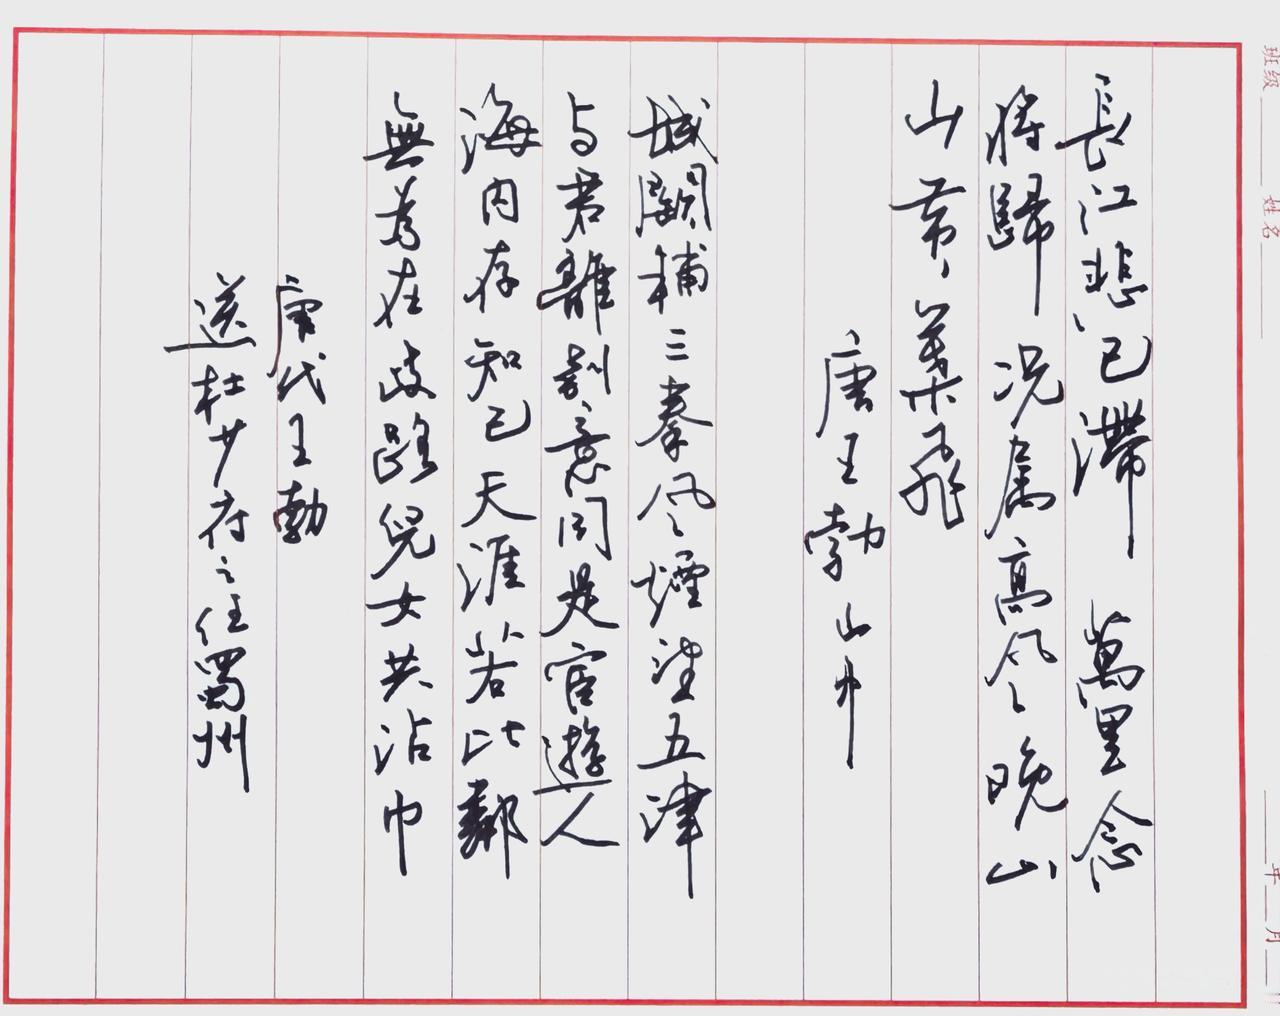 長江悲已滯萬里念
將歸况属高風晚山
山黄、葉飛
唐王勃山中
城闕輔三秦风煙望五津
与君離别意同是宦遊人
海内存知己天涯若比鄰
無為在歧路兒女共沾巾
唐代王勃
送杜少府之任蜀州
班级 姓名 年 月